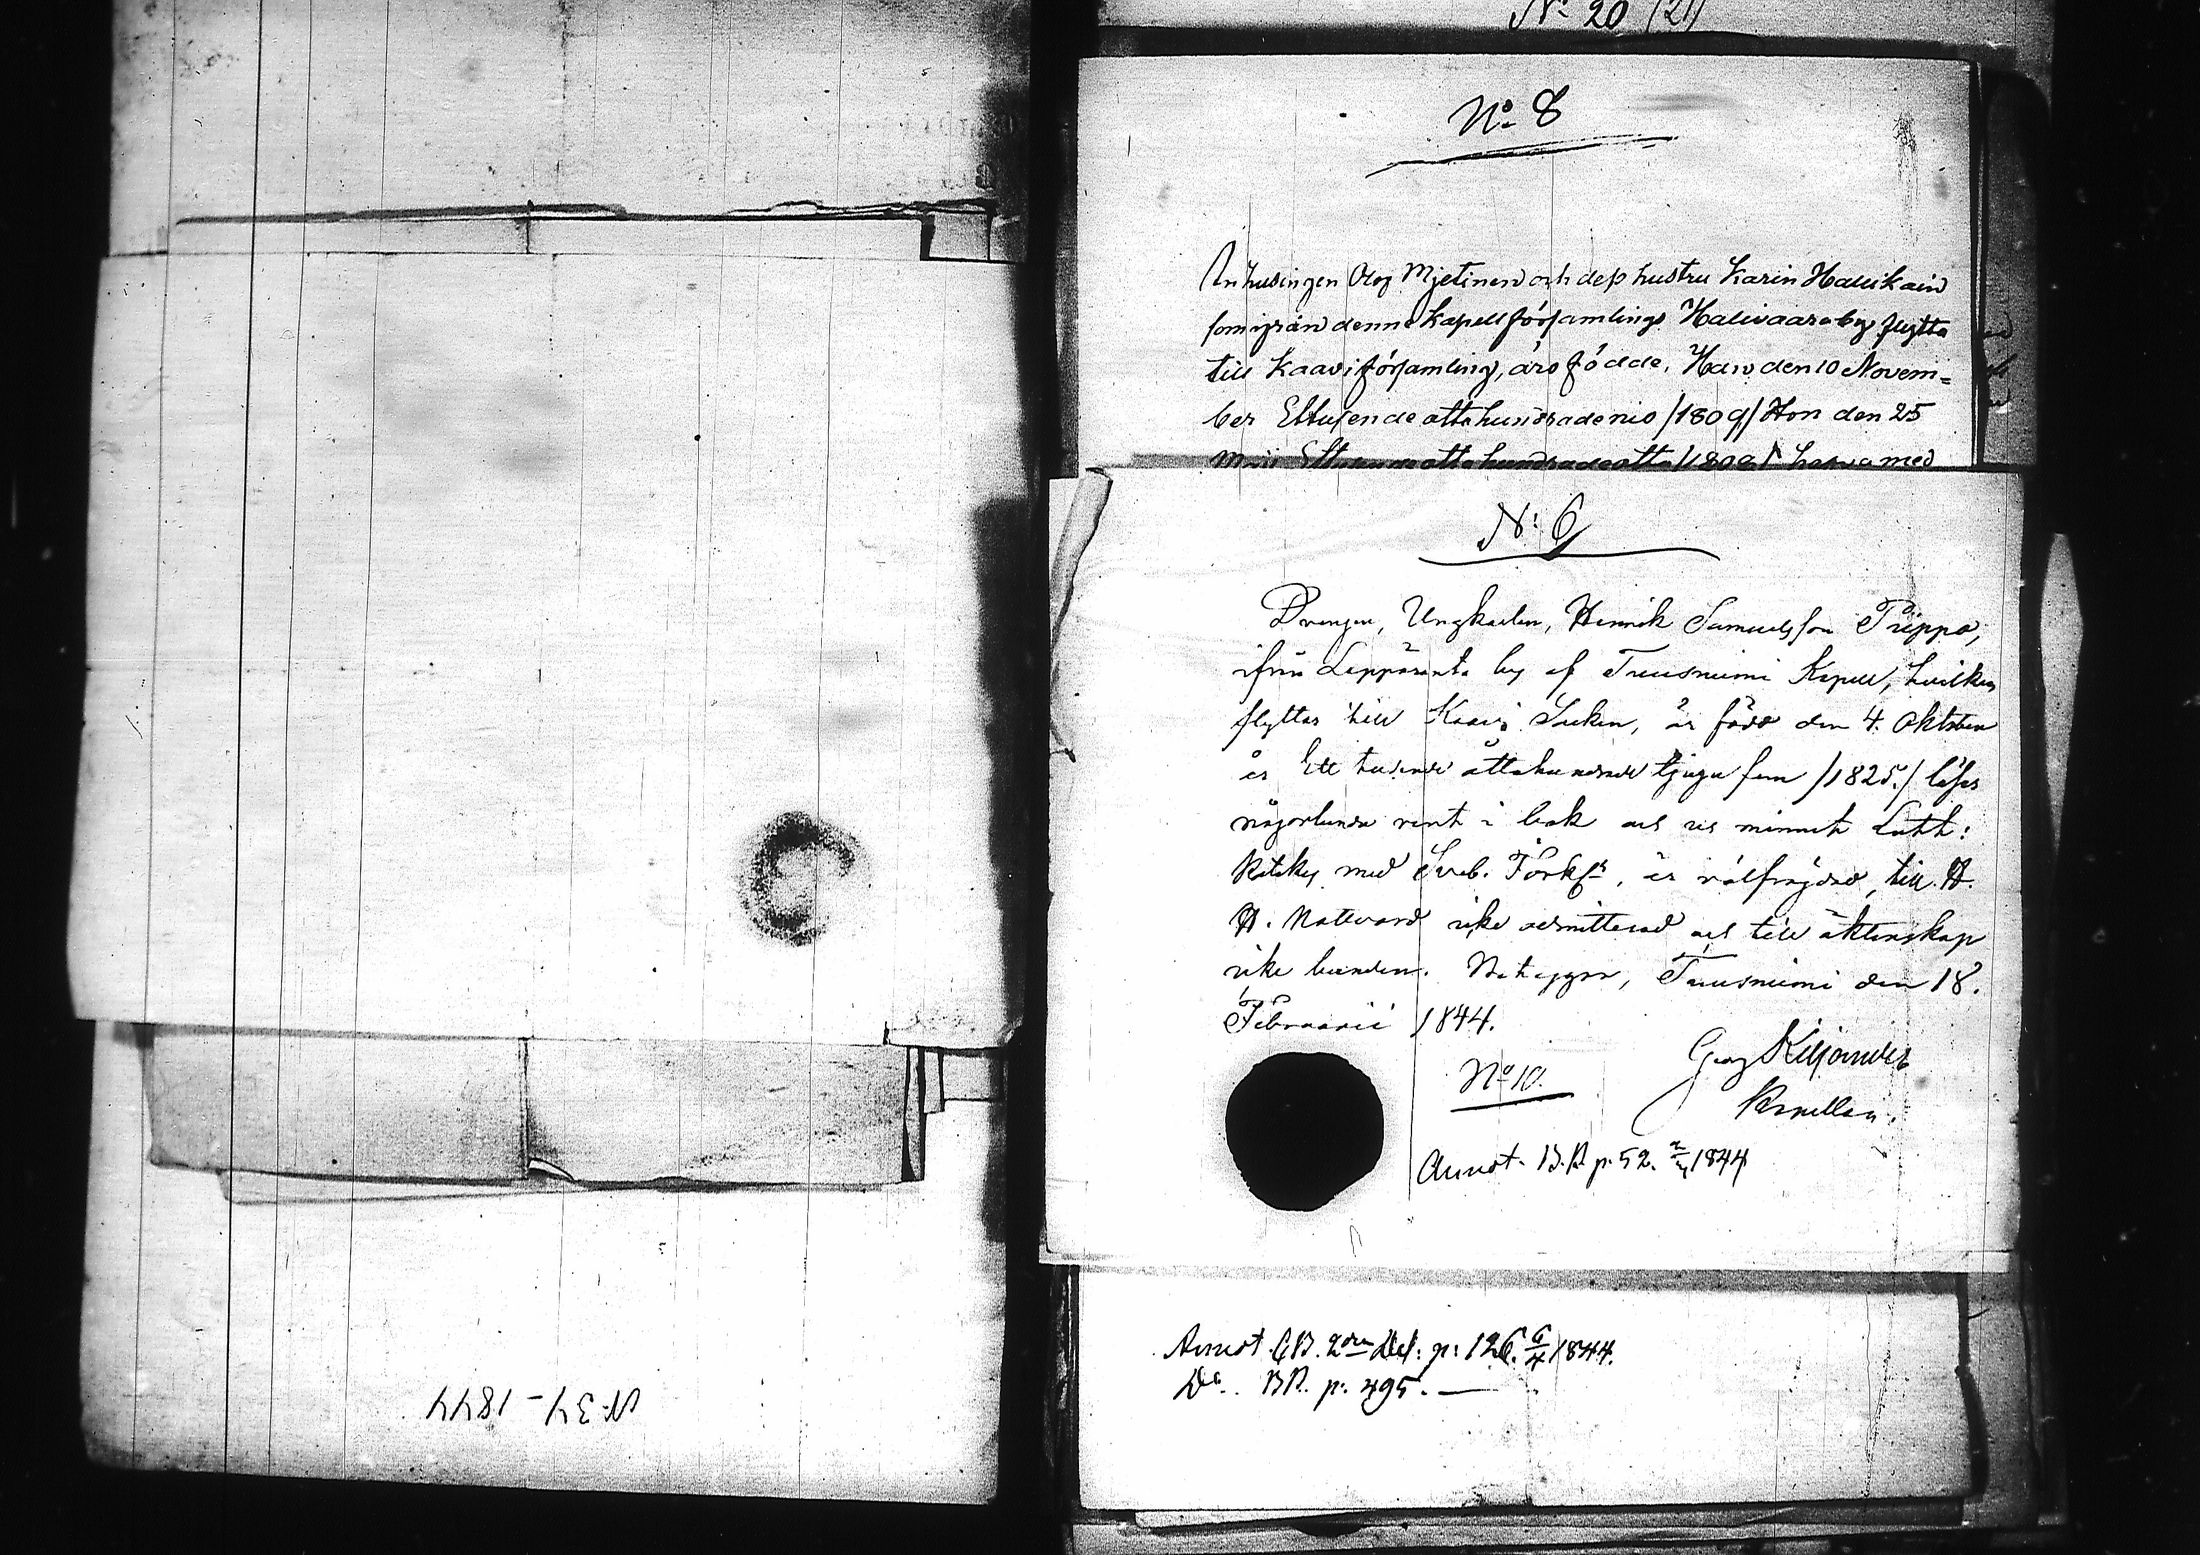 N:o 20 (21)
N:o 8
Inhusingen Olof Mjetinen och dess hustru Karin Hallikain
som ifrån denne Kapellförsamlings Halivaara by flytta
till Kaavi församling, äro födde, Han den 10 Novem=
ber Ettusende åttahundradenio /1809/ Hon den 25
Maii Ettusende åttahundradeåtta med
N: 6
Drengen, Ungkarlen, Henrik Samuelsson Pirppo,
ifrån Leppäranta by af Tuusniemi Kapell, hvilken
flyttar till Kaavi Socken, är född den 4. Oktober
år Ett tusende åttahundrade tjugu fem /1825./ läser
någorlunda rent i bok och ur minnet Luth:
Katekes med Sveb. Förkl:r, är välfräjdad, till H.
H. Nattvard icke admitterad och till äktenskap
icke bunden. Betygar, Tuusniemi den 18.
Februarii 1844.
Georg Kiljander
Kapellan.
N:o 10.
Annot. B.R. p. 52. 1844
Annot. C.B. 2dra Del: p: 126. 6/4 1844.
D:o. B.R. p. 495. —
N: 34 - 1844